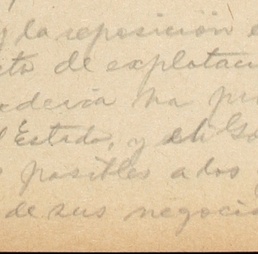 y la reposición e
to de explotaci
adeira ha pr
l Estado, y el Go
s posibles a dos
de sus negocio